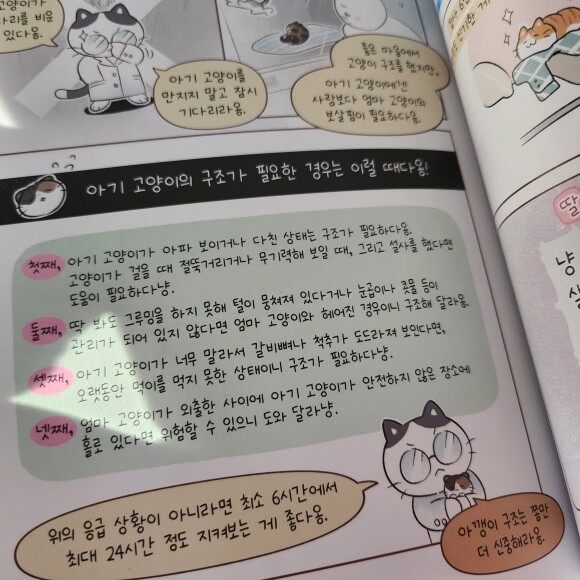 고양이가
자리를 비운
있다옹.
아기 고양이를
만지지 말고 잠시
기다리라옹.
좋은 마음에서
고양이 구조를 했지만,
아기 고양이에겐
사람보다 엄마 고양이의
보살핌이 필요하다옹.
아기 고양이의 구조가 필요한 경우는 이럴 때다옹!
첫째, 아기 고양이가 아파 보이거나 다친 상태는 구조가 필요하다옹.
고양이가 걸을 때 절뚝거리거나 무기력해 보일 때, 그리고 설사를 했다면
도움이 필요하다냥.
둘째, 딱 봐도 그루밍을 하지 못해 털이 뭉쳐져 있다거나 눈곱이나 콧물 등이
관리가 되어 있지 않다면 엄마 고양이와 헤어진 경우이니 구조해 달라옹.
셋째, 아기 고양이가 너무 말라서 갈비뼈나 척추가 도드라져 보인다면,
오랫동안 먹이를 먹지 못한 상태이니 구조가 필요하다냥.
넷째, 엄마 고양이가 외출한 사이에 아기 고양이가 안전하지 않은 장소에
홀로 있다면 위험할 수 있으니 도와 달라냥.
위의 응급 상황이 아니라면 최소 6시간에서
최대 24시간 정도 지켜보는 게 좋다옹.
아깽이 구조는 좀만
더 신중해라옹.
딸
냥